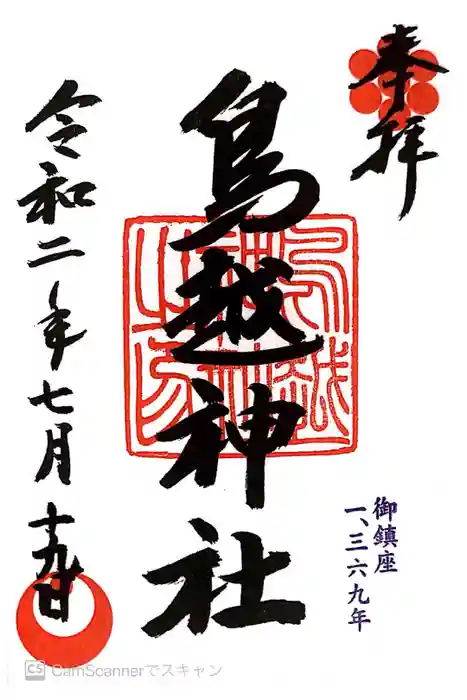 奉拝
鳥越神社
御鎮座
一、三六九年
令和二年七月十九日
CS CamScannerでスキャン